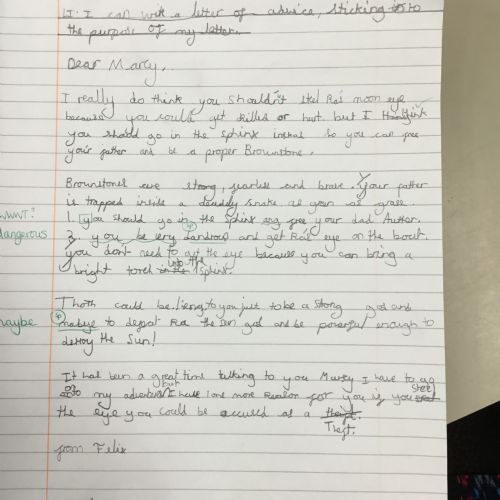 LI: I can writ a letter of advice, sticking to to
the purpose of my letter.
Dear Marcy,
I really do think you shouldn't steal Ra's moon eye
because you could get killed or hurt. but I think
you should go in the sphinx insted so you can free
your father and be a proper Brownstone.
Brownstones are strong, fearless and brave. your father
is trapped inside a deadly snake as green as grass.
1. you should go in the sphinx and free your dad
WWWT? 3. you be very and get Ra's eye on the bout.
dangerous you don't need to get the eye because you can bring a
bright torch into the sphinx.
Thoth could be lieing to you just to be a strong god and
maybe mabye to defeat Ra the sun god and be powerful enough to
destroy the Sun!
It had been a great time talking to you Marcy I have to go
on to my adventure but I have one more reason for you if you steel
the eye you could be accused of a theift.
Theft.
from Felix